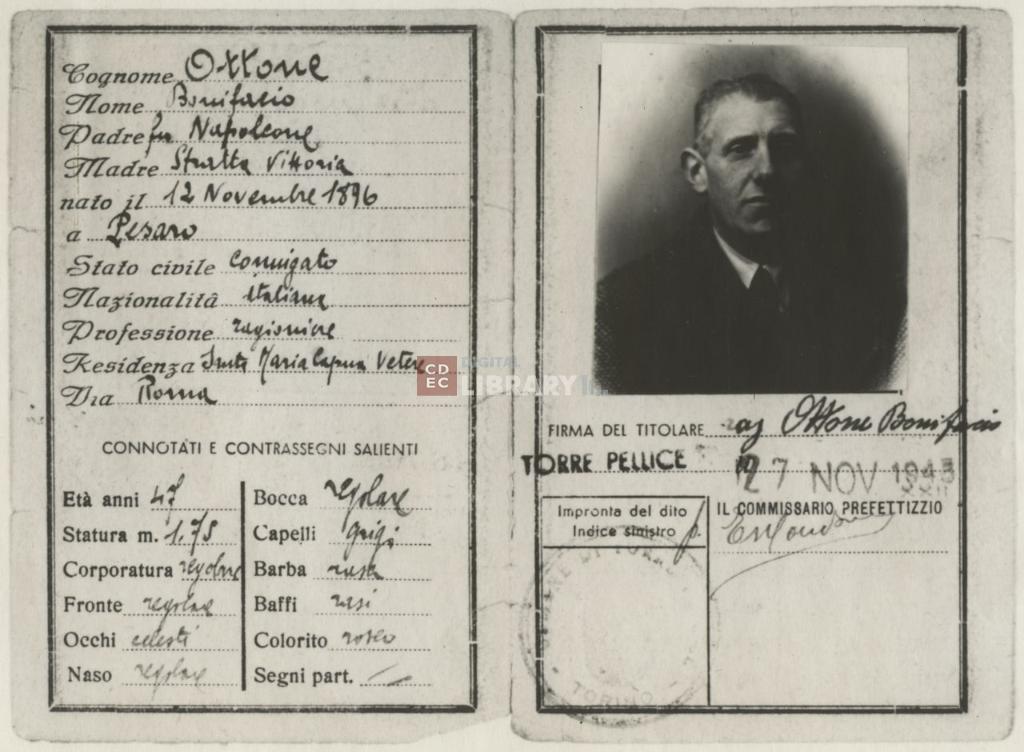 Cognome Ottone
Nome Bonifacio
Padre fu Napoleone
Madre Vittoria
nato il 12 Novembre 1896
a Pesaro
Stato civile Coniugato
Nazionalità italiana
Professione ragioniere
Residenza Santa Maria Capua Vetere
Via Roma
CONNOTATI E CONTRASSEGNI SALIENTI
Età anni 47
Statura m. 1.75
Corporatura regolare
Fronte regolare
Occhi celesti
Naso regolare
Bocca regolare
Capelli grigi
Barba rasa
Baffi rasi
Colorito roseo
Segni part. —
CDEC DIGITAL LIBRARY
FIRMA DEL TITOLARE rag Ottone Bonifacio
TORRE PELLICE 27 NOV 1943
Impronta del dito
Indice sinistro
IL COMMISSARIO PREFETTIZZIO
TORINO